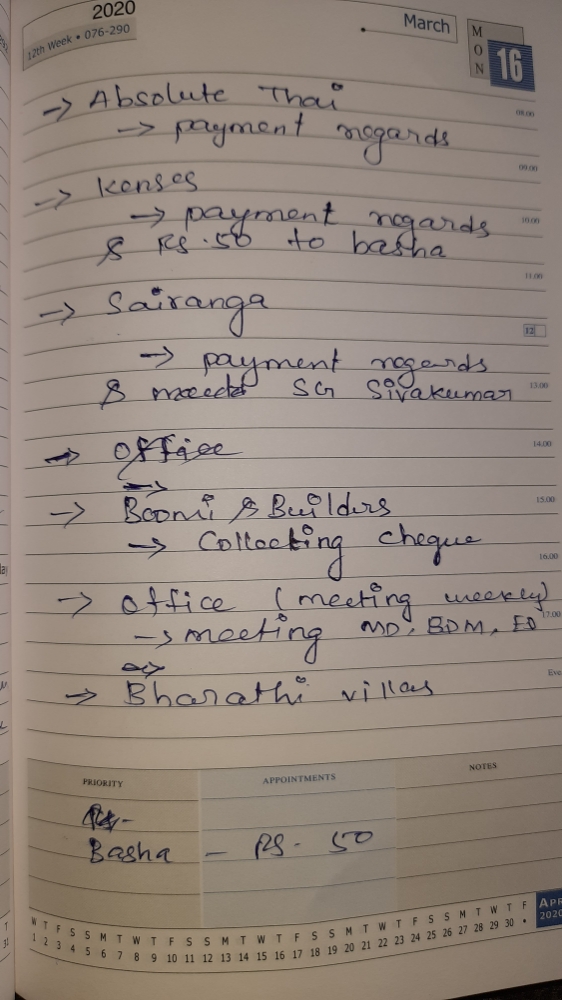 2020
12th Week • 076-290
March
MON
16
→ Absolute Thai
08.00
→ payment regards
09.00
→ Kenses
→ payment regards
10.00
& Rs.50 to basha
11.00
→ Sairanga
12
→ payment regards
& meet SG Sivakumar
13.00
→ Office
14.00
→
→ Boomi & Builders
15.00
→ Collecting cheque
16.00
→ Office (meeting weekly)
17.00
→ meeting MD, BDM, ED
→ Bharathi villas
Eve
PRIORITY
APPOINTMENTS
NOTES
Rs-
Basha - RS. 50
W T F S S M T W T F S S M T W T F S S M T W T F S S M T W T F
1 2 3 4 5 6 7 8 9 10 11 12 13 14 15 16 17 18 19 20 21 22 23 24 25 26 27 28 29 30 •
APR
2020
T
31